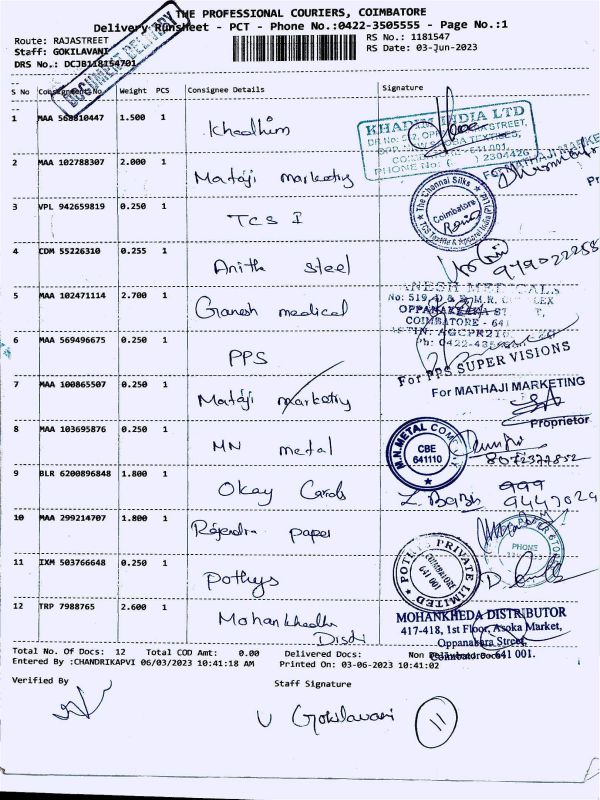 THE PROFESSIONAL COURIERS, COIMBATORE
Delivery Runsheet - PCT - Phone No.:0422-3505555 - Page No.:1
DOCUMENT DELIVERY
Route: RAJASTREET
RS No.: 1181547
Staff: GOKILAVANI
RS Date: 03-Jun-2023
DRS No.: DCJB118154701
S No Consignment No Weight PCS Consignee Details Signature
1 MAA 568810447 1.500 1 Khadhim
KHADIM INDIA LTD
2 MAA 102788307 2.000 1 Mataji marketry
For MATHAJI MARKE
3 VPL 942659819 0.250 1 TCS I
The Chennai Silks
Coimbatore
4 CDM 55226310 0.255 1 Anitha steel
979022258
5 MAA 102471114 2.700 1 Ganesh medical
ANESH MEDICALS
COIMBATORE - 641
6 MAA 569496675 0.250 1 PPS
For PPS SUPER VISIONS
7 MAA 100865707 0.250 1 Mataji marketry
For MATHAJI MARKETING
Proprietor
8 MAA 103695876 0.250 1 MN metal
M.N.METAL COMPANY
CBE
641110
8072377852
9 BLR 6200896848 1.800 1 Okay Cards
999
9447024
10 MAA 299214707 1.800 1 Rajendra paper
PHONE
11 IXM 503766648 0.250 1 Pothys
POTHYS PRIVATE LIMITED
COIMBATORE
641 001
12 TRP 7988765 2.600 1 Mohankhedha
Distri
MOHANKHEDA DISTRIBUTOR
417-418, 1st Floor, Asoka Market,
Oppanakara Street,
Coimbatore - 641 001.
Total No. Of Docs: 12 Total COD Amt: 0.00 Delivered Docs: Non Delivered Docs:
Entered By :CHANDRIKAPVI 06/03/2023 10:41:18 AM Printed On: 03-06-2023 10:41:02
Verified By
Staff Signature
V Gokilavani
11